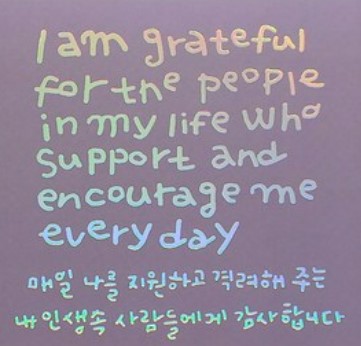 I am grateful
for the people
in my life who
support and
encourage me
every day
매일 나를 지원하고 격려해 주는
내 인생속 사람들에게 감사합니다